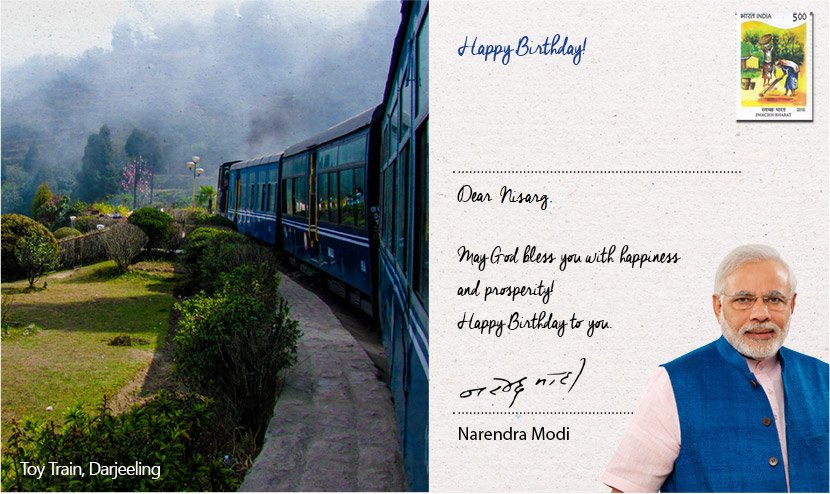 Happy Birthday!
भारत INDIA 500
स्वच्छ भारत 2015
SWACHH BHARAT
Dear Nisarg,
May God bless you with happiness
and prosperity!
Happy Birthday to you.
नरेन्द्र मोदी
Narendra Modi
Toy Train, Darjeeling